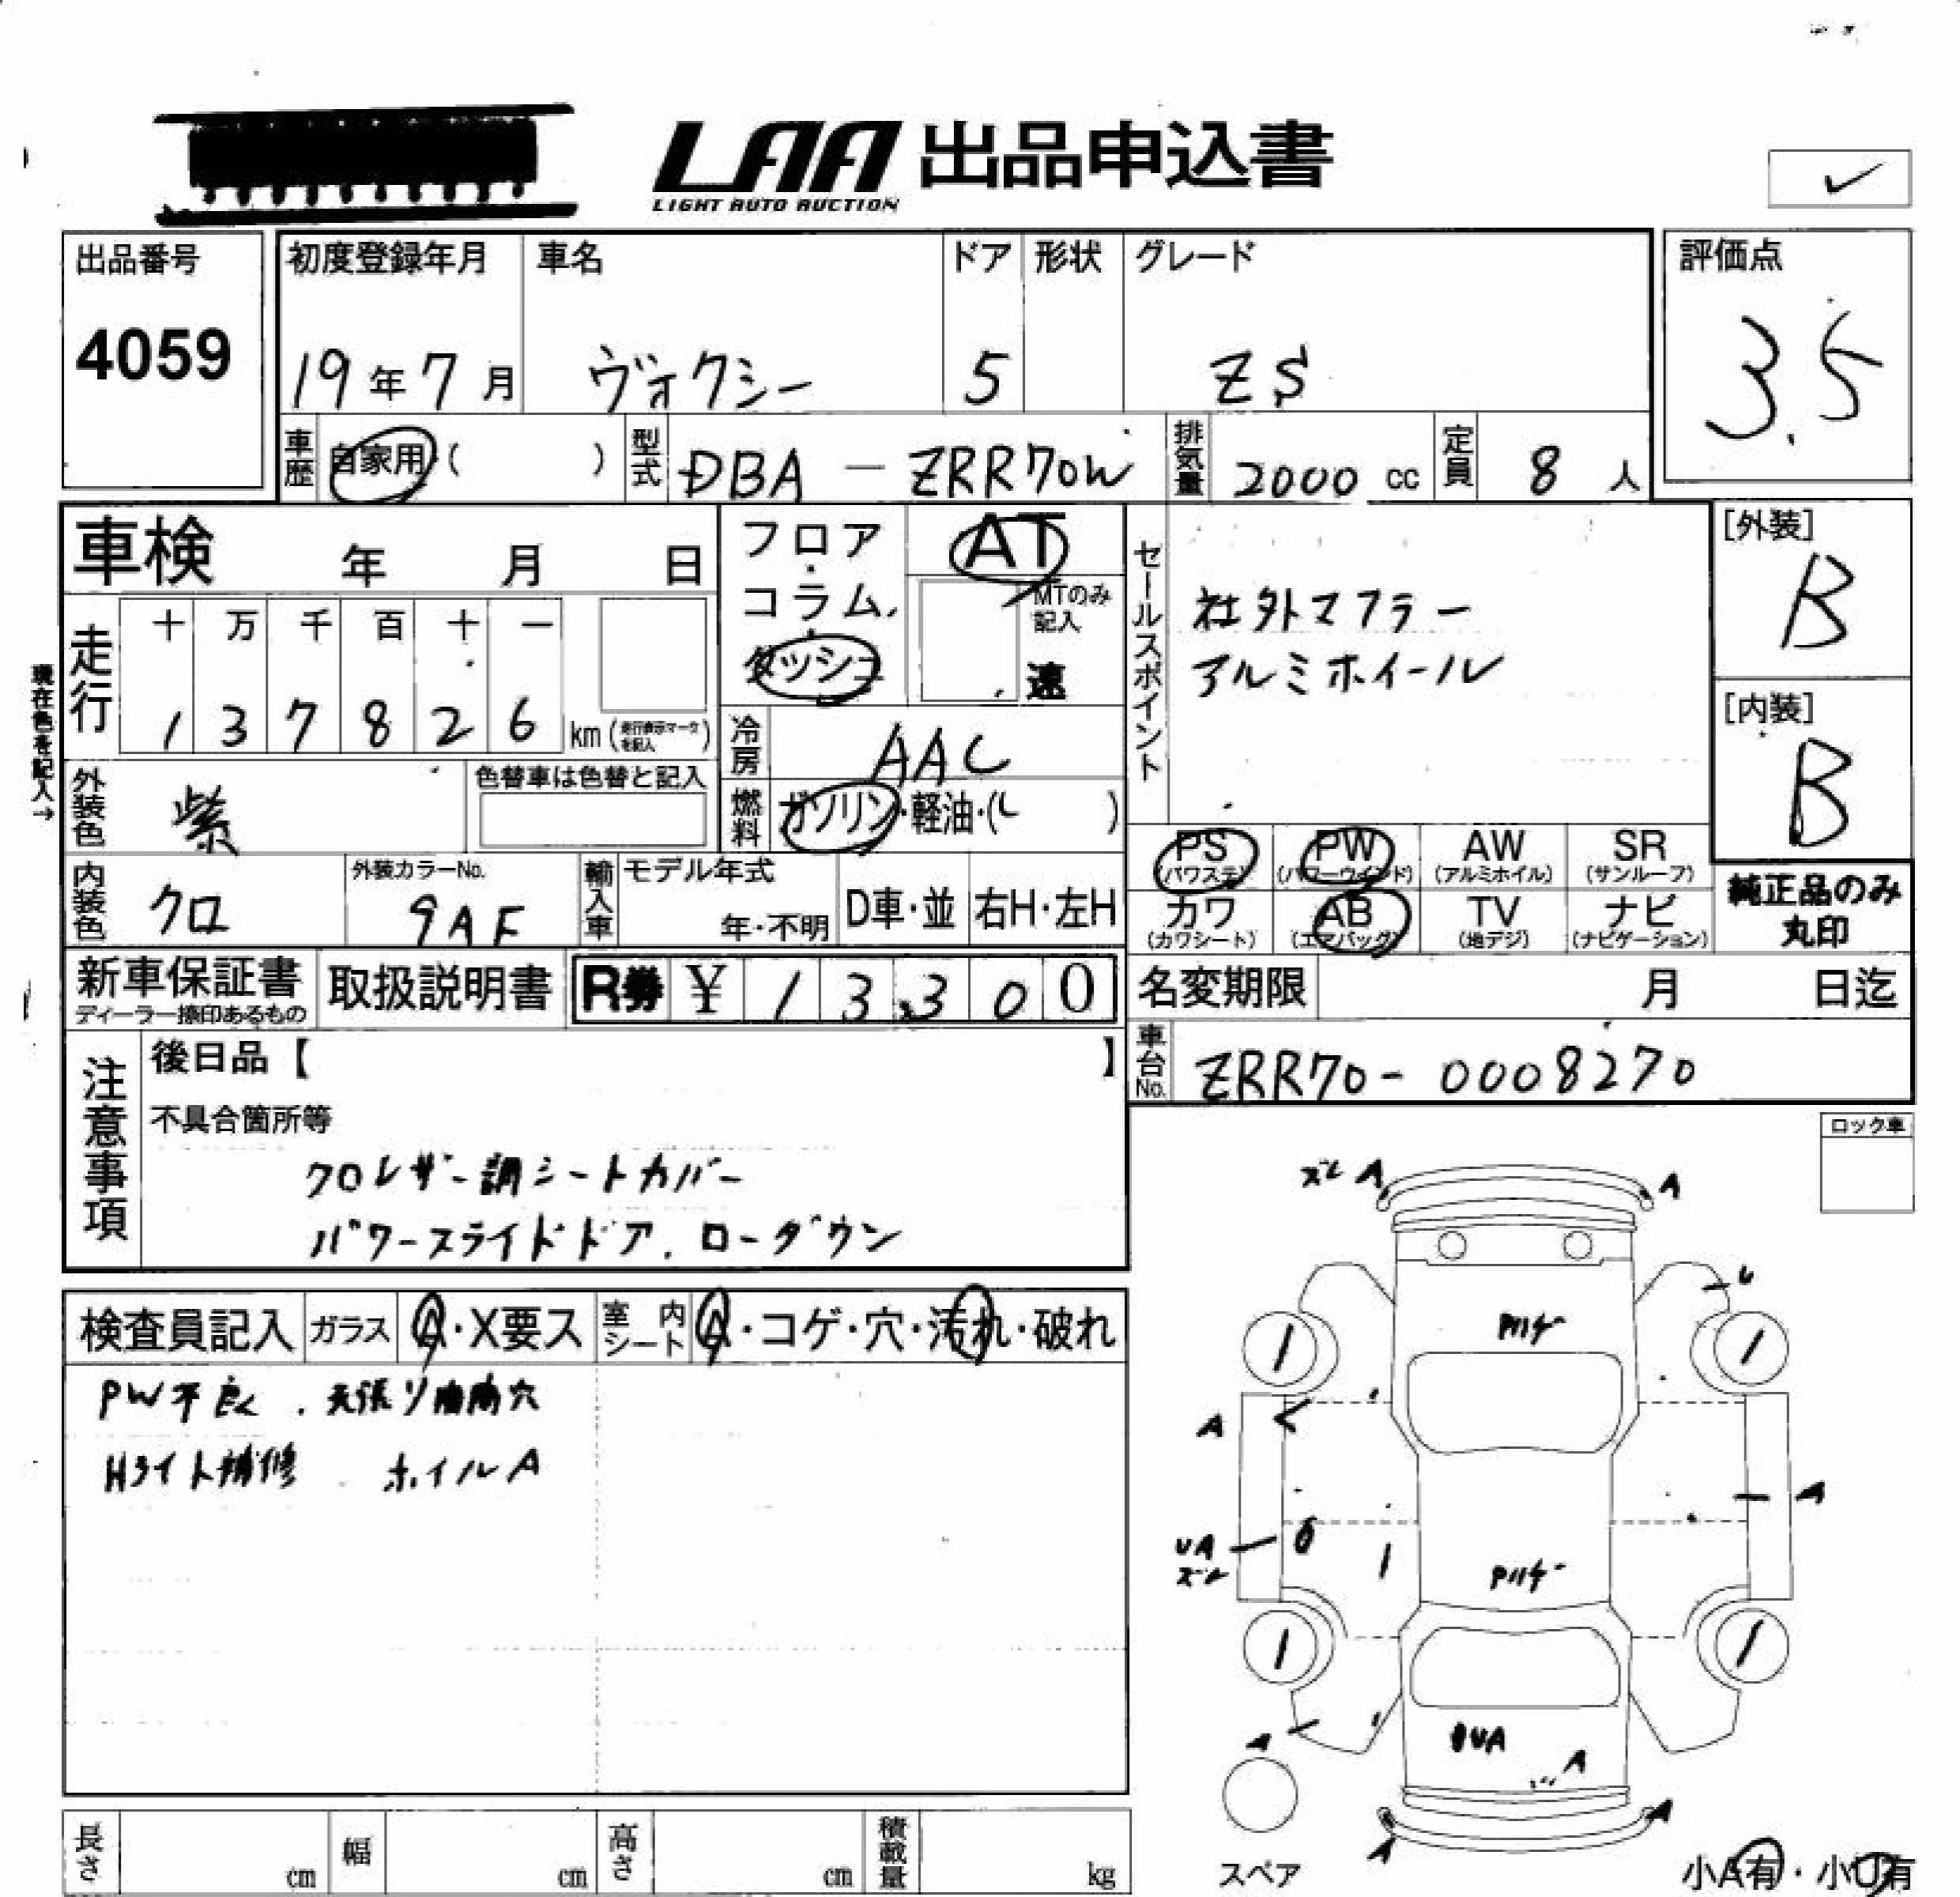 LAA 出品申込書
LIGHT AUTO AUCTION
出品番号
4059
初度登録年月
19年7月
車名
ヴォクシー
ドア
5
形状
グレード
ZS
評価点
3.5
車歴 自家用・( )
型式 DBA - ZRR70W
排気量 2000 cc
定員 8 人
車検 年 月 日
フロア・コラム・ダッシュ
AT
MTのみ記入
速
セールスポイント
社外マフラー
アルミホイール
[外装]
B
[内装]
B
現在色を記入→
走行
十 万 千 百 十 一
1 3 7 8 2 6 km (走行表示マークを記入)
冷房 AAC
燃料 ガソリン・軽油・( )
外装色 紫
色替車は色替と記入
内装色 クロ
外装カラーNo.
9AF
輸入車
モデル年式
年・不明
D車・並
右H・左H
PS (パワステ)
PW (パワーウインド)
AW (アルミホイル)
SR (サンルーフ)
カワ (カワシート)
AB (エアバッグ)
TV (地デジ)
ナビ (ナビゲーション)
純正品のみ丸印
新車保証書
ディーラー捺印あるもの
取扱説明書
R券 ¥ 13,300
名変期限 月 日迄
車台No. ZRR70-0008270
注意事項
後日品【 】
不具合箇所等
クロレザー調シートカバー
パワースライドドア、ローダウン
ロック車
検査員記入
ガラス A・X要ス
室内シート A・コゲ・穴・汚れ・破れ
PW不良.天張り
穴
Hライト補修 ホイルA
ズレ A
A
U
Pハゲ
A
A
UA
ズレ
Pハゲ
A
UA
A
A
A
スペア
小A有・小U有
長さ cm
幅 cm
高さ cm
積載量 kg